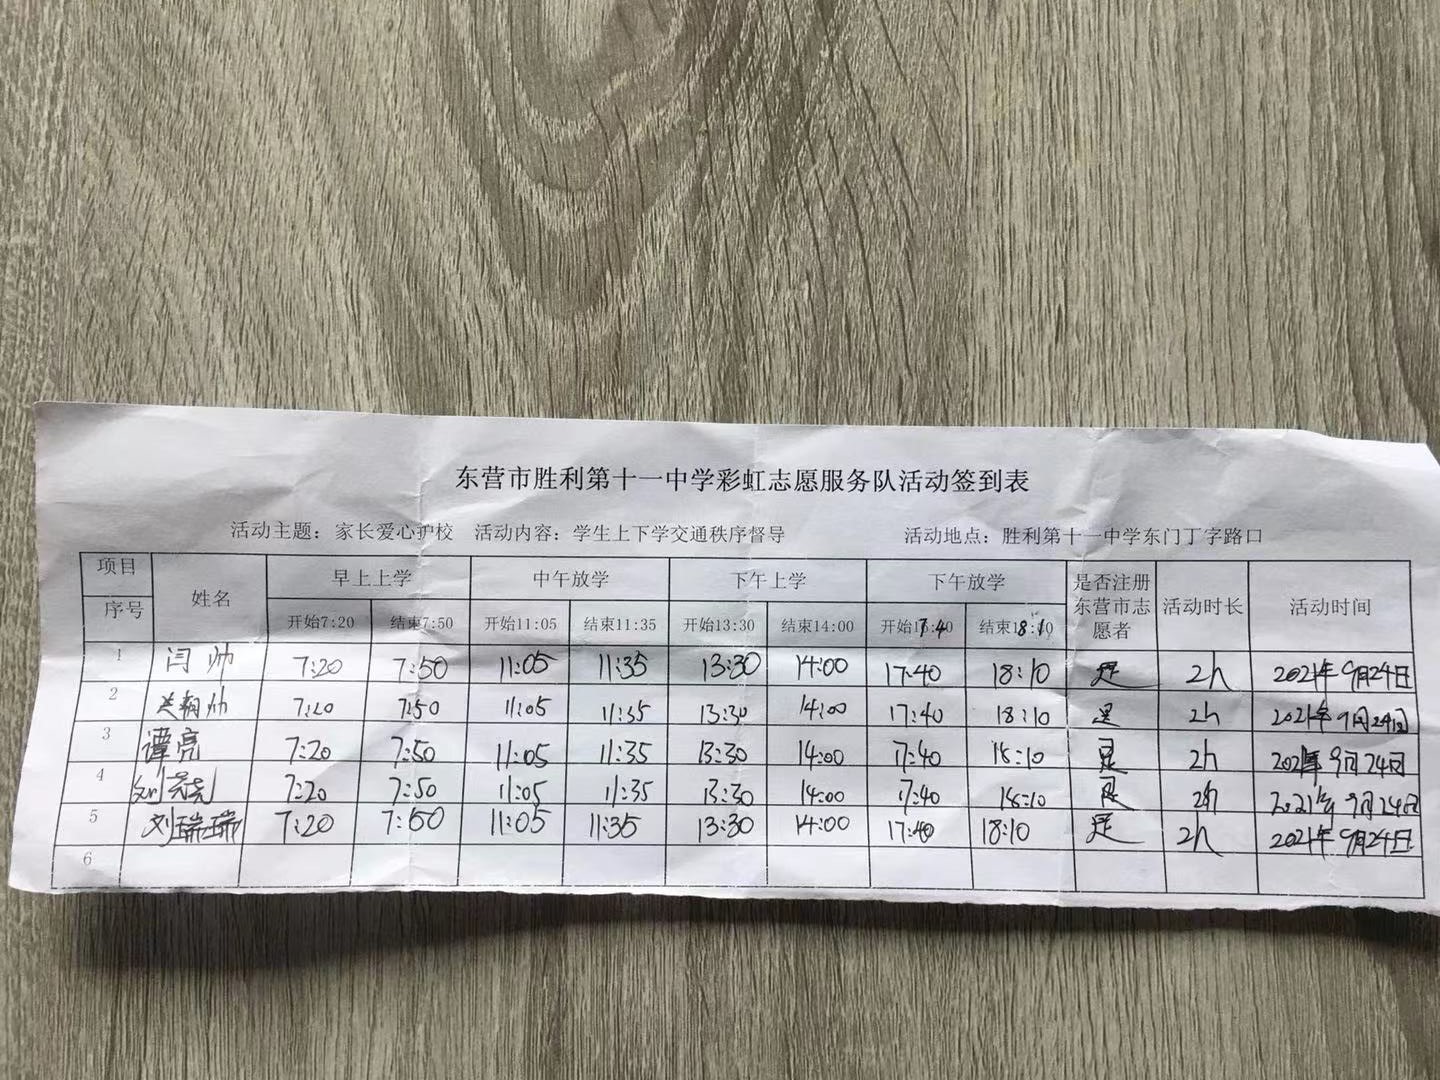 东营市胜利第十一中学彩虹志愿服务队活动签到表
活动主题：家长爱心护校 活动内容：学生上下学交通秩序督导 活动地点：胜利第十一中学东门丁字路口
项目 序号 姓名 早上上学 中午放学 下午上学 下午放学 是否注册东营市志愿者 活动时长 活动时间
开始7:20 结束7:50 开始11:05 结束11:35 开始13:30 结束14:00 开始17:40 结束18:10
1 闫帅 7:20 7:50 11:05 11:35 13:30 14:00 17:40 18:10 是 2h 2021年9月24日
2 7:20 7:50 11:05 11:35 13:30 14:00 17:40 18:10 是 2h 2021年9月24日
3 谭亮 7:20 7:50 11:05 11:35 13:30 14:00 17:40 18:10 是 2h 2021年9月24日
4 刘 7:20 7:50 11:05 11:35 13:30 14:00 17:40 18:10 是 2h 2021年9月24日
5 刘瑞瑞 7:20 7:50 11:05 11:35 13:30 14:00 17:40 18:10 是 2h 2021年9月24日
6